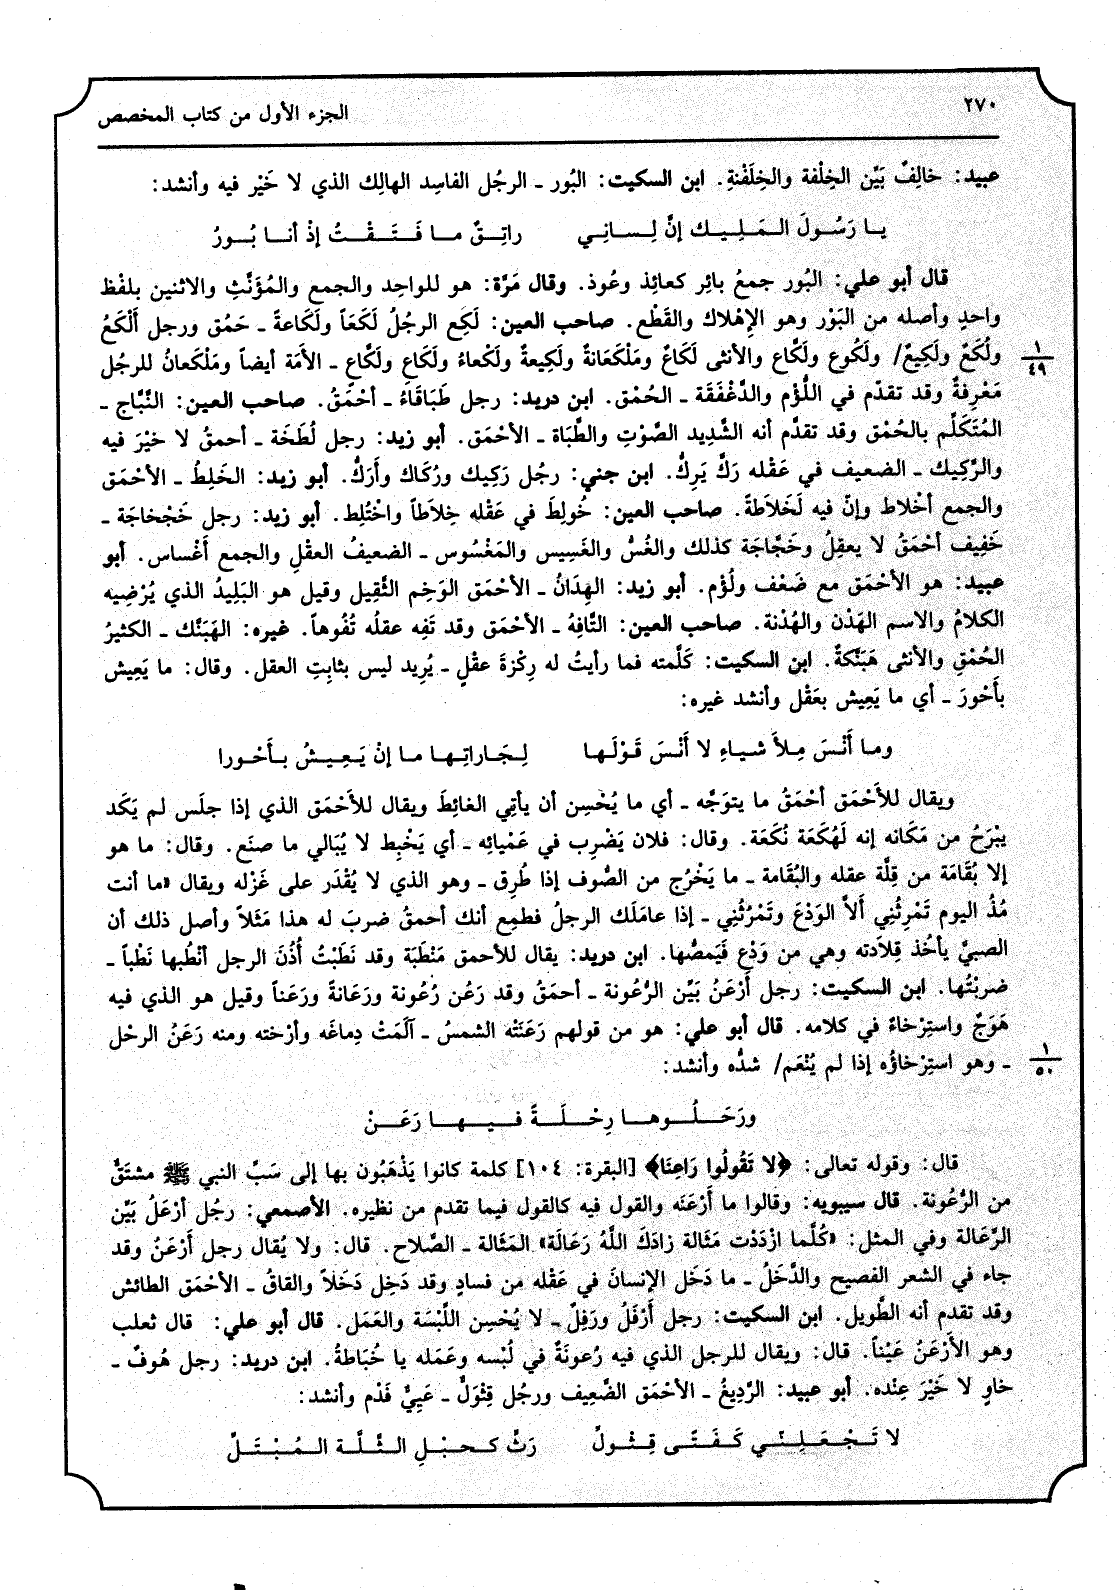 ٢٧٠
الجزء الأول من كتاب المخصص
عبيد: خالِفٌ بَيِّن الخِلْفة والخِلَفْنةِ. ابن السكيت: البُور ـ الرجُل الفاسِد الهالِك الذي لا خَيْر فيه وأنشد:
يـا رَسُـولَ الـمَـلِـيـك إنَّ لِـسـانِـي راتِـقٌ مـا فَـتَـقْـتُ إذْ أنـا بُـورُ
قال أبو علي: البُور جمعُ بائِر كعائِذ وعُوذ. وقال مَرَّة: هو للواحِد والجمع والمُؤنَّثِ والاثنين بلفْظ
واحدٍ وأصله من البَوْر وهو الإهْلاك والقَطْع. صاحب العين: لَكِع الرجُلُ لَكَعَاً ولَكَاعةً ـ حَمُق ورجل أَلْكَعُ
ولُكَعٌ ولَكِيعٌ/ ولَكُوع ولَكَّاع والأنثى لَكَاعٌ ومَلْكَعَانةٌ ولَكِيعةٌ ولَكْعاءُ ولَكَاعِ ولَكَّاعٍ ـ الأمَة أيضاً ومَلْكَعانُ للرجُل
١
٤٩
مَعْرِفةٌ وقد تقدّم في اللُّؤم والدَّغْفَقَة ـ الحُمْق. ابن دريد: رجل طَبَاقَاءُ ـ أحْمَقُ. صاحب العين: النَّبَّاج ـ
المُتَكَلِّم بالحُمْق وقد تقدَّم أنه الشَّدِيد الصَّوْتِ والطَّبَاة ـ الأحْمَق. أبو زيد: رجل لُطَخَة ـ أحمقُ لا خيْرَ فيه
والرَّكِيك ـ الضعيف في عَقْله رَكَّ يَرِكُّ. ابن جني: رجُل رَكِيك ورُكَاك وأَرَكُّ. أبو زيد: الخَلِطُ ـ الأحْمَق
والجمع أخْلاط وإنَّ فيه لَخَلاَطةً. صاحب العين: خُولِطَ في عَقْله خِلاَطاً واخْتُلِط. أبو زيد: رجل خَجْخاجَة ـ
خَفِيف أحْمَقُ لا يعقِلُ وخَجَّاجَة كذلك والغُسُّ والغَسِيس والمَغْسُوس ـ الضعيفُ العقْلِ والجمع أغْساس. أبو
عبيد: هو الأحْمَق مع ضَعْف ولُؤْم. أبو زيد: الهِدَانُ ـ الأحْمَق الوَخِم الثَّقِيل وقيل هو البَلِيدُ الذي يُرْضِيه
الكلامُ والاسم الهَدْن والهُدْنة. صاحب العين: التَّافِهُ ـ الأحْمَق وقد تَفِه عقلُه تُفُوهاً. غيره: الهَبَنَّك ـ الكثيرُ
الحُمْقِ والأنثى هَبَنَّكةٌ. ابن السكيت: كَلَّمته فما رأيتُ له رِكْزةَ عقْلٍ ـ يُرِيد ليس بثابِتِ العقل. وقال: ما يَعِيش
بأحْورَ ـ أي ما يَعِيش بعَقْل وأنشد غيره:
ومـا أَنْـسَ مِـلأَ شـيـاءِ لا أَنْـسَ قَـوْلَـهـا لِـجَـاراتِـهـا مـا إنْ يَـعِـيـشُ بـأَحْـورا
ويقال للأحْمَق أحْمَقُ ما يتوَجَّه ـ أي ما يُحْسِن أن يأتِي الغائِطَ ويقال للأحْمَق الذي إذا جلَس لم يَكَد
يبْرَحُ من مَكَانه إنه لَهُكَعَة نُكَعَة. وقال: فلان يَضْرِب في عَمْيائِه ـ أي يَخْبِط لا يُبَالي ما صنَع. وقال: ما هو
إلا بُقَامَة من قِلَّة عقله والبُقَامة ـ ما يَخْرُج من الصُّوف إذا طُرِق ـ وهو الذي لا يُقْدَر على غَزْله ويقال «ما أنت
مُذُ اليوم تَمْرِثُنِي أَلاَّ الوَدْعَ وتَمْرُثُنِي ـ إذا عامَلَك الرجلُ فطمِع أنك أحمقُ ضربَ له هذا مَثَلاً وأصل ذلك أن
الصبيَّ يأخُذ قِلاَدته وهي من وَدْع فَيَمصُّها. ابن دريد: يقال للأحمق مَنْطَبَة وقد نَطَبْتُ أُذُنَ الرجل أنْطُبها نَطْباً ـ
ضربْتُها. ابن السكيت: رجل أَرْعَنُ بَيِّن الرُّعونة ـ أحمَقُ وقد رَعُن رُعُونة ورَعَانةً ورَعَناً وقيل هو الذي فيه
هَوَجٌ واستِرْخاءٌ في كلامه. قال أبو علي: هو من قولهم رَعَنَتْه الشمسُ ـ آلَمَتْ دِماغَه وأرْخته ومنه رَعَنُ الرحْل
١
٥٠
ـ وهو استِرْخاؤُه إذا لم يُنْعَم/ شدُّه وأنشد:
ورَحَـلُـوهـا رِحْـلَـةً فـيـهـا رَعَـنْ
قال: وقوله تعالى: ﴿لا تَقُولُوا رَاعِنَا﴾ [البقرة: ١٠٤] كلمة كانوا يَذْهَبُون بها إلى سَبِّ النبي ﷺ مشتَقٌّ
من الرُّعُونة. قال سيبويه: وقالوا ما أَرْعَنَه والقول فيه كالقول فيما تقدم من نظيره. الأصمعي: رجُل أرْعَلُ بَيِّن
الرَّعَالة وفي المثل: «كُلَّما ازْدَدْت مَثَالة زادَكَ اللَّهُ رَعَالَة» المَثَالة ـ الصَّلاح. قال: ولا يُقال رجل أَرْعَنُ وقد
جاء في الشعر الفصيح والدَّخَلُ ـ ما دَخَل الإنسانَ في عَقْله من فسادٍ وقد دَخِل دَخَلاً والقاقُ ـ الأحْمَق الطائش
وقد تقدم أنه الطَّويل. ابن السكيت: رجل أَرْفَلُ ورَفِلٌ ـ لا يُحْسِن اللِّبْسَة والعَمَل. قال أبو علي: قال ثعلب
وهو الأَرْعَنُ عَيْناً. قال: ويقال للرجل الذي فيه رُعونَةٌ في لُبْسه وعَمَله يا خُبَاطةُ. ابن دريد: رجل هُوفٌ ـ
خاوٍ لا خَيْرَ عِنْده. أبو عبيد: الرَّدِيغُ ـ الأحْمَق الضَّعِيف ورجُل قِثْوَلٌّ ـ عَيِيٌّ فَدْم وأنشد:
لا تَـجْـعَـلِـنِّـي كَـفَـتًـى قِـثْـولِّ رَثٍّ كـحـبْـلِ الـثَّـلَّـة الـمُـبْـتَـلِّ